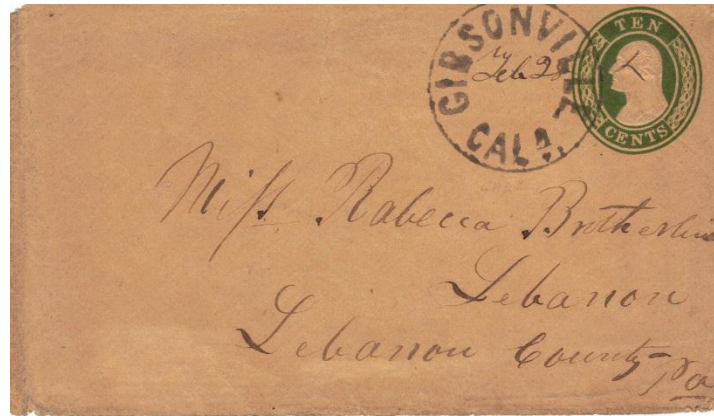 GIBSONVILLE
Feb 28
CALA.
TEN
CENTS
Miss Rabecca Brotherlin
Lebanon
Lebanon County Pa